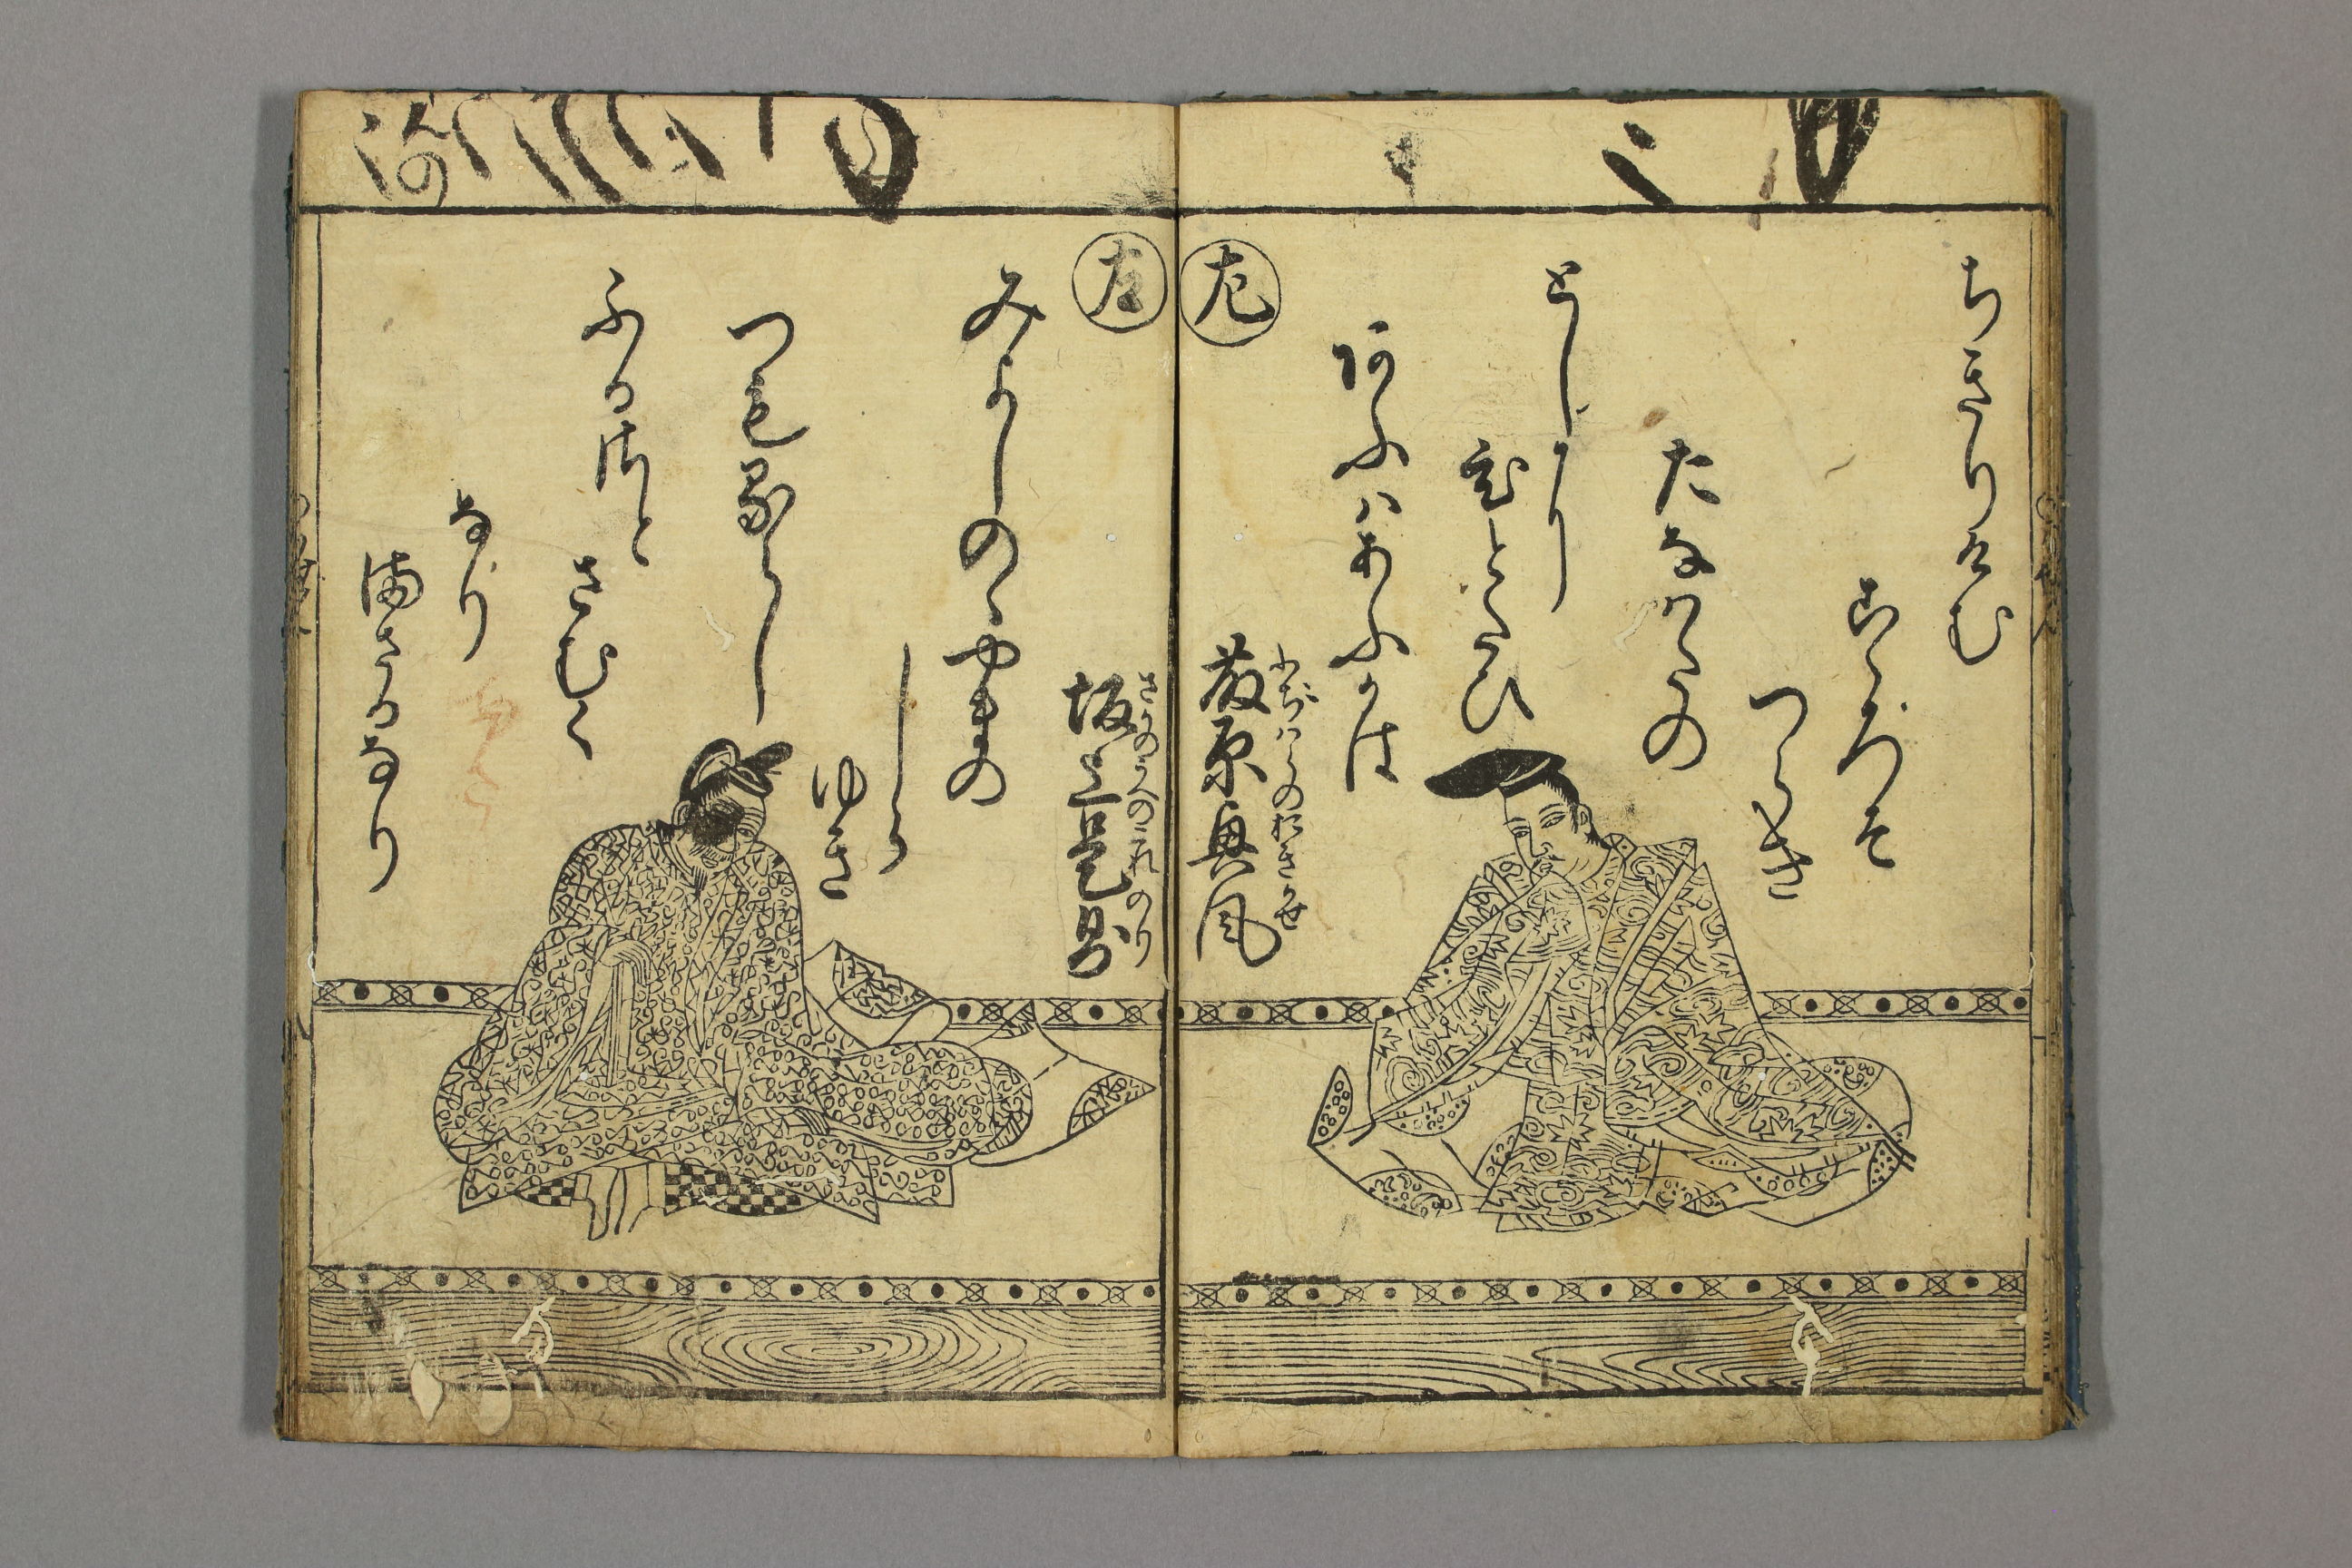 ちきりけむ
こゝろそ
つらき
たなハたの
としに
ひとたひ
あふハあふかは
左
ふぢハらのおきかせ
藤原興風
左
さかのうへのこれのり
坂上是則
みよしのゝやまの
しら
ゆき
つもるらし
ふるさと
さむく
なり
まさるなり